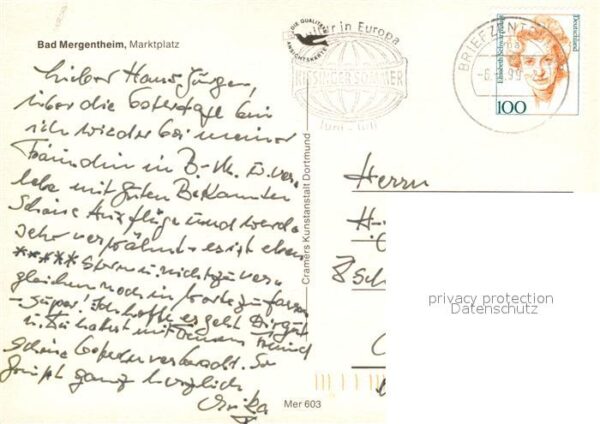 Bad Mergentheim, Marktplatz
Lieber Hans Jürgen,
über die Ostertage bin
ich wieder bei meiner
Freundin in B.-M. u. ver-
lebe mit guten Bekannten
schöne Ausflüge und werde
sehr verwöhnt - es ist eben
***** Stern u. nicht zu ver-
gleichen noch in Worte zu fassen
- super! Ich hoffe es geht Dir gut
u. Du hast mit Deinem Freund
schöne Ostern verbracht. So
grüßt ganz herzlich
Erika
DIE QUALITÄTS
ANSICHTSKARTE
in Europa
KISSINGER SOMMER
Juni - Juli
BRIEFZENTRUM
Deutschland
Elisabeth Schwarzhaupt
100
Cramers Kunstanstalt Dortmund
Herrn
privacy protection
Datenschutz
Mer 603